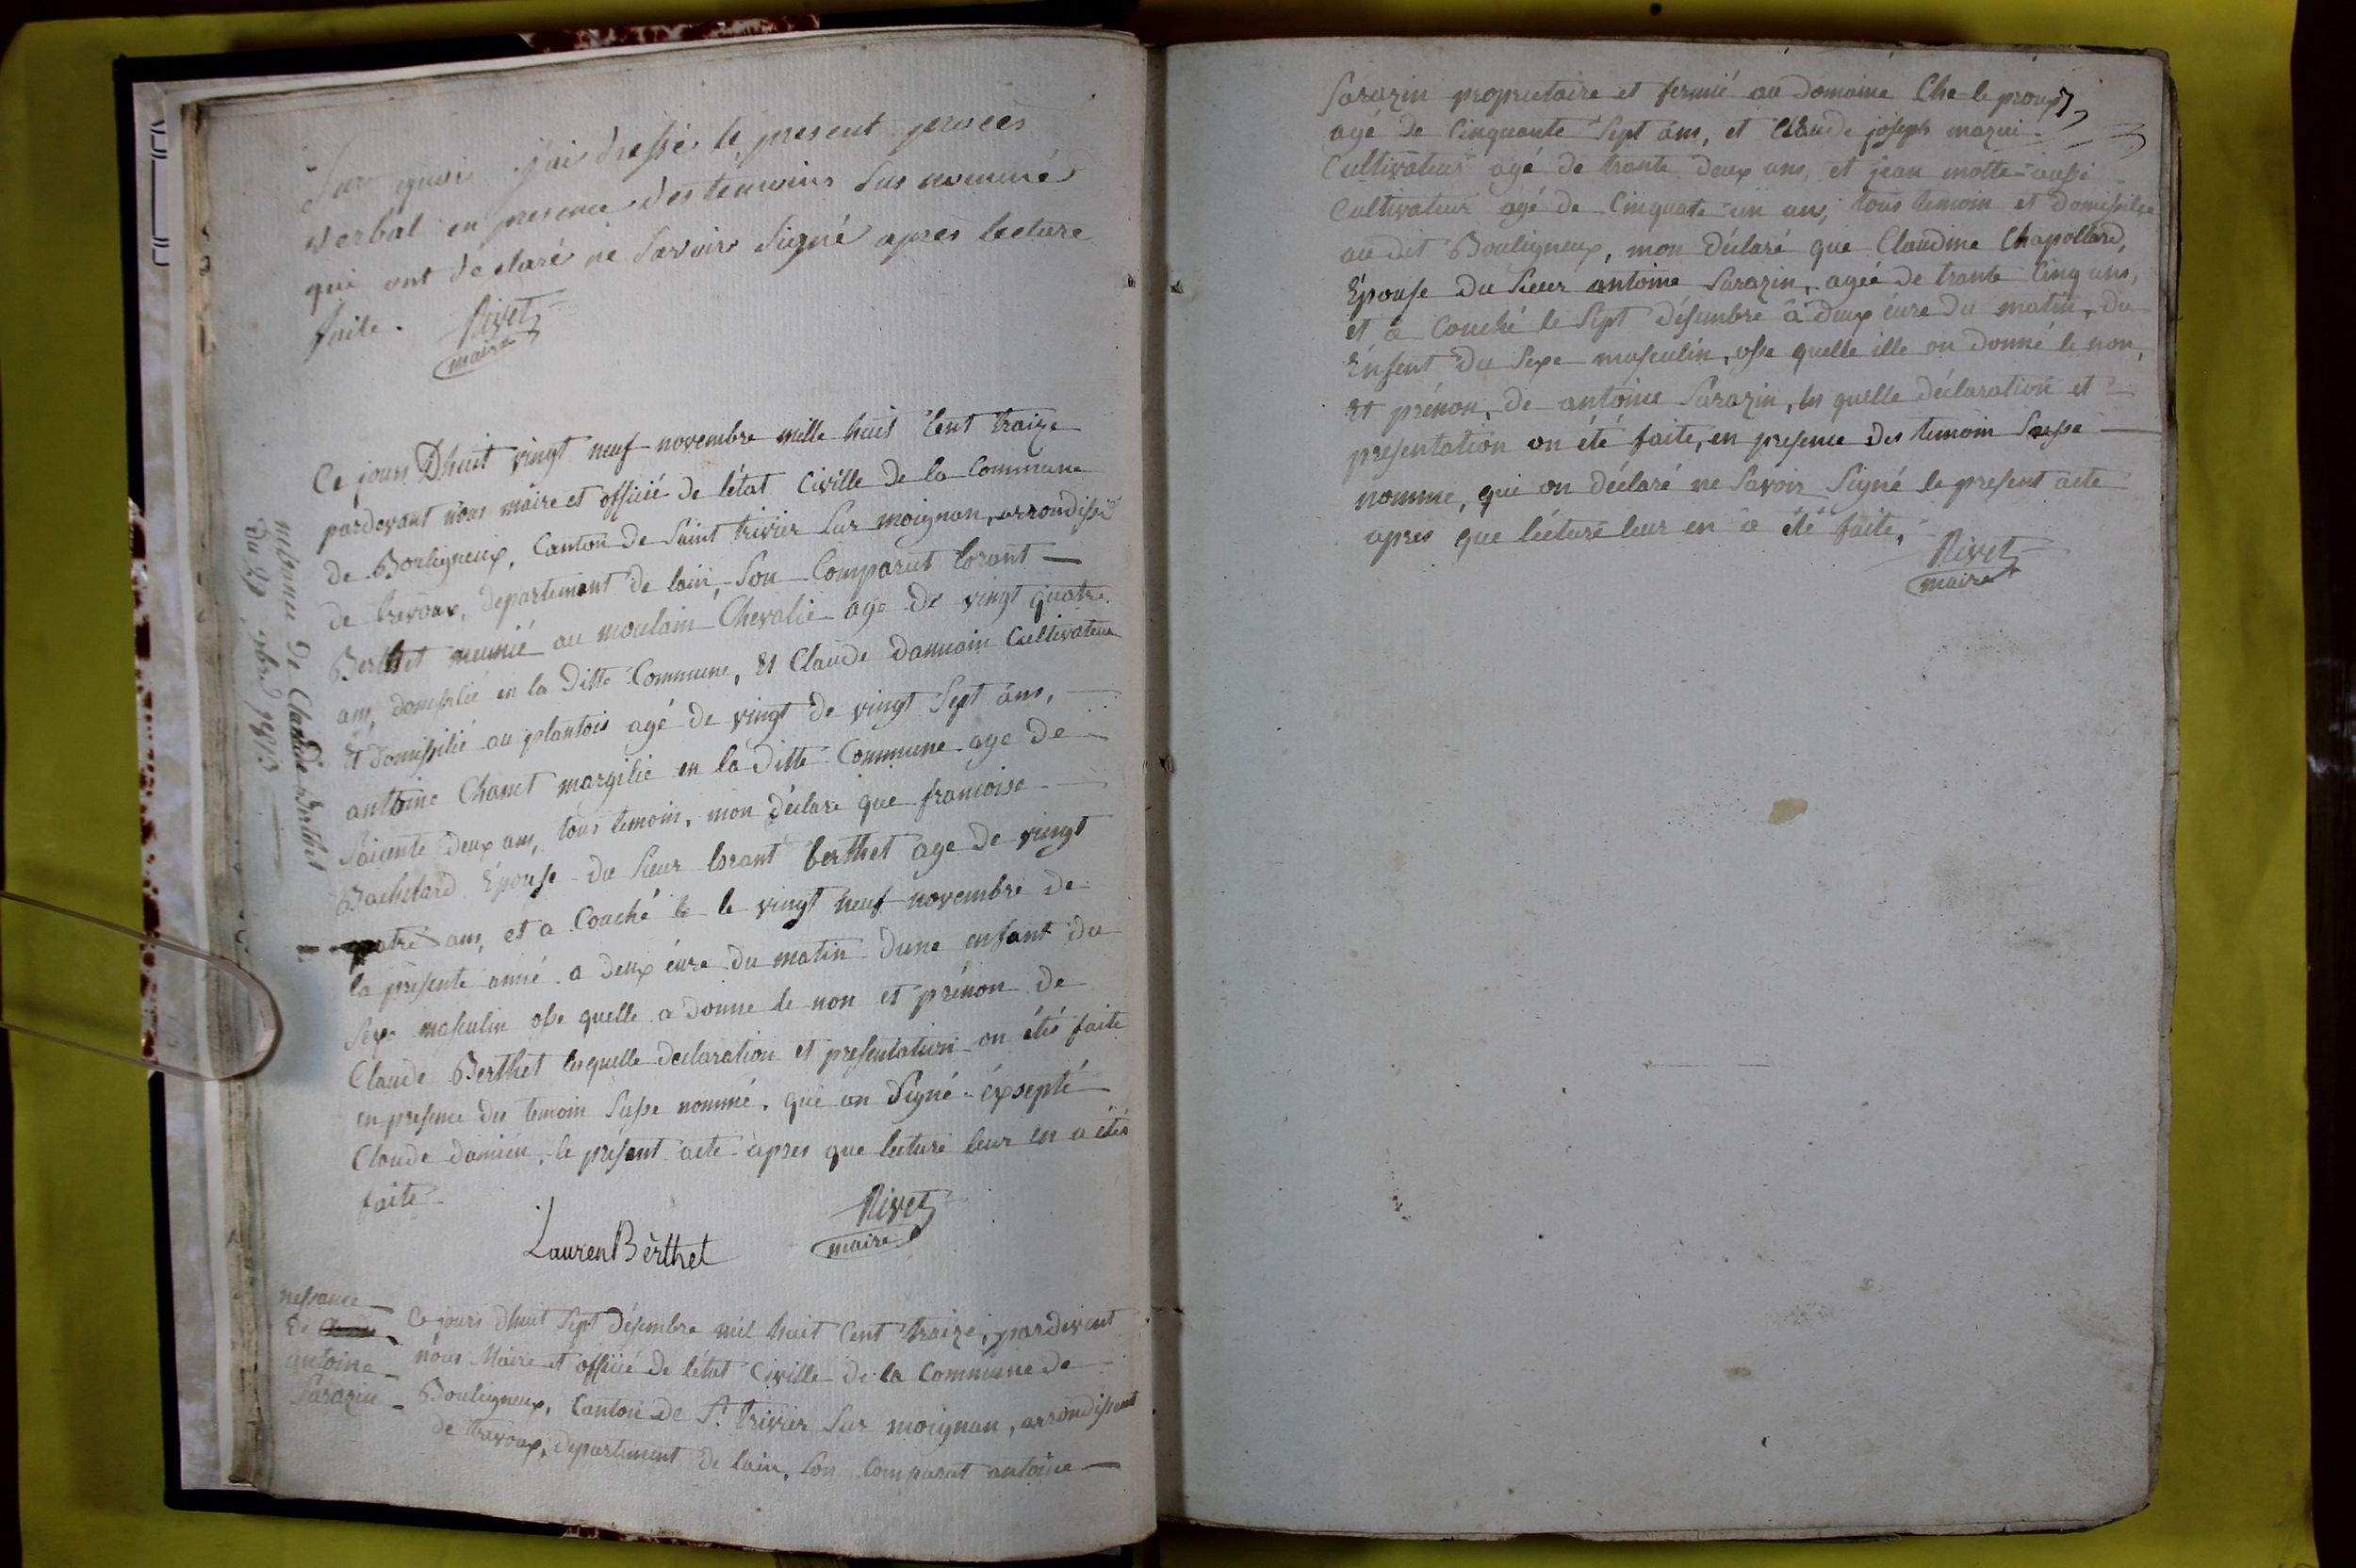 Sur quoi j'ai dressé le present procès
verbal en presence des témoins sus nommé
qui ont declaré ne Savoir Signé après lecture
faite.
Rivet
maire
Ce jours Dhuit vingt neuf novembre mille huit Cent traize
pardevant nous maire et officié de l'état Civille de la Commune
de Bouligneux, Canton de Saint trivier Sur moignan, arrondissé
de trevoux, departement de lain, Son Comparut lorant
Berthet meunié au moulain Chevalié age de vingt quatre
ans, domisilié en la ditte Commune, et Claude damiain Cultivateur
et domissilié au plantois agé de vingt de vingt Sept ans,
antoine Chanet margilié en la ditte Commune age de
Soicente deux ans, tous temoin, mon déclaré que francoise
Bachelard Épouse du Sieur lorant berthet age de vingt
quatre ans, et a Couché le le vingt neuf novembre de
la présente anné a deux éure du matin dune enfant du
Sexe masculin osse quelle a donne le non et prénon de
Claude Berthet lesquelle declaration et presentation on étés faite
en presence des temoin Susse nommé, qui on Signé éxsepté
Claude damien, le présent acte apres que lecture leur en a étés
faite
Lauren Berthet
Rivet
maire
de Claude Berthet
du 29 9bre 1813
nessance
de
antoine
Sarazin
Ce jours dhuit Sept désembre mil huit Cent traize, pardevent
nous Maire et officié de l'état Civille de la Commune de
Bouligneux, Canton de St. trivier Sur moignan, arrondissent
de trevoux, departement de lain, Son Comparut antoine
Sarazin proprietaire et fermié au domaine Che le proux
agé de Cinquante Sept ans, et Claude joseph mazui
Cultivateur agé de trante deux ans, et jean motte aussi
Cultivateur agé de Cinquate un ans, tous temoin et domissilie
au dit Bouligneux, mon déclaré que Claudine Chapollard,
Épouse du Sieur antoine Sarazin, agée de trante Cinq ans,
et a Couché le Sept désembre à deux éure du matin, du
Enfent du Sexe masculin, osse quelle ille on donné le non,
et prénon, de antoine Sarazin, les quelle déclaration et
presentation on été faite, en presence des temoin Susse
nomme, qui on déclaré ne Savoir Signé le present acte
apres que lecture leur en a été faite,
Rivet
maire